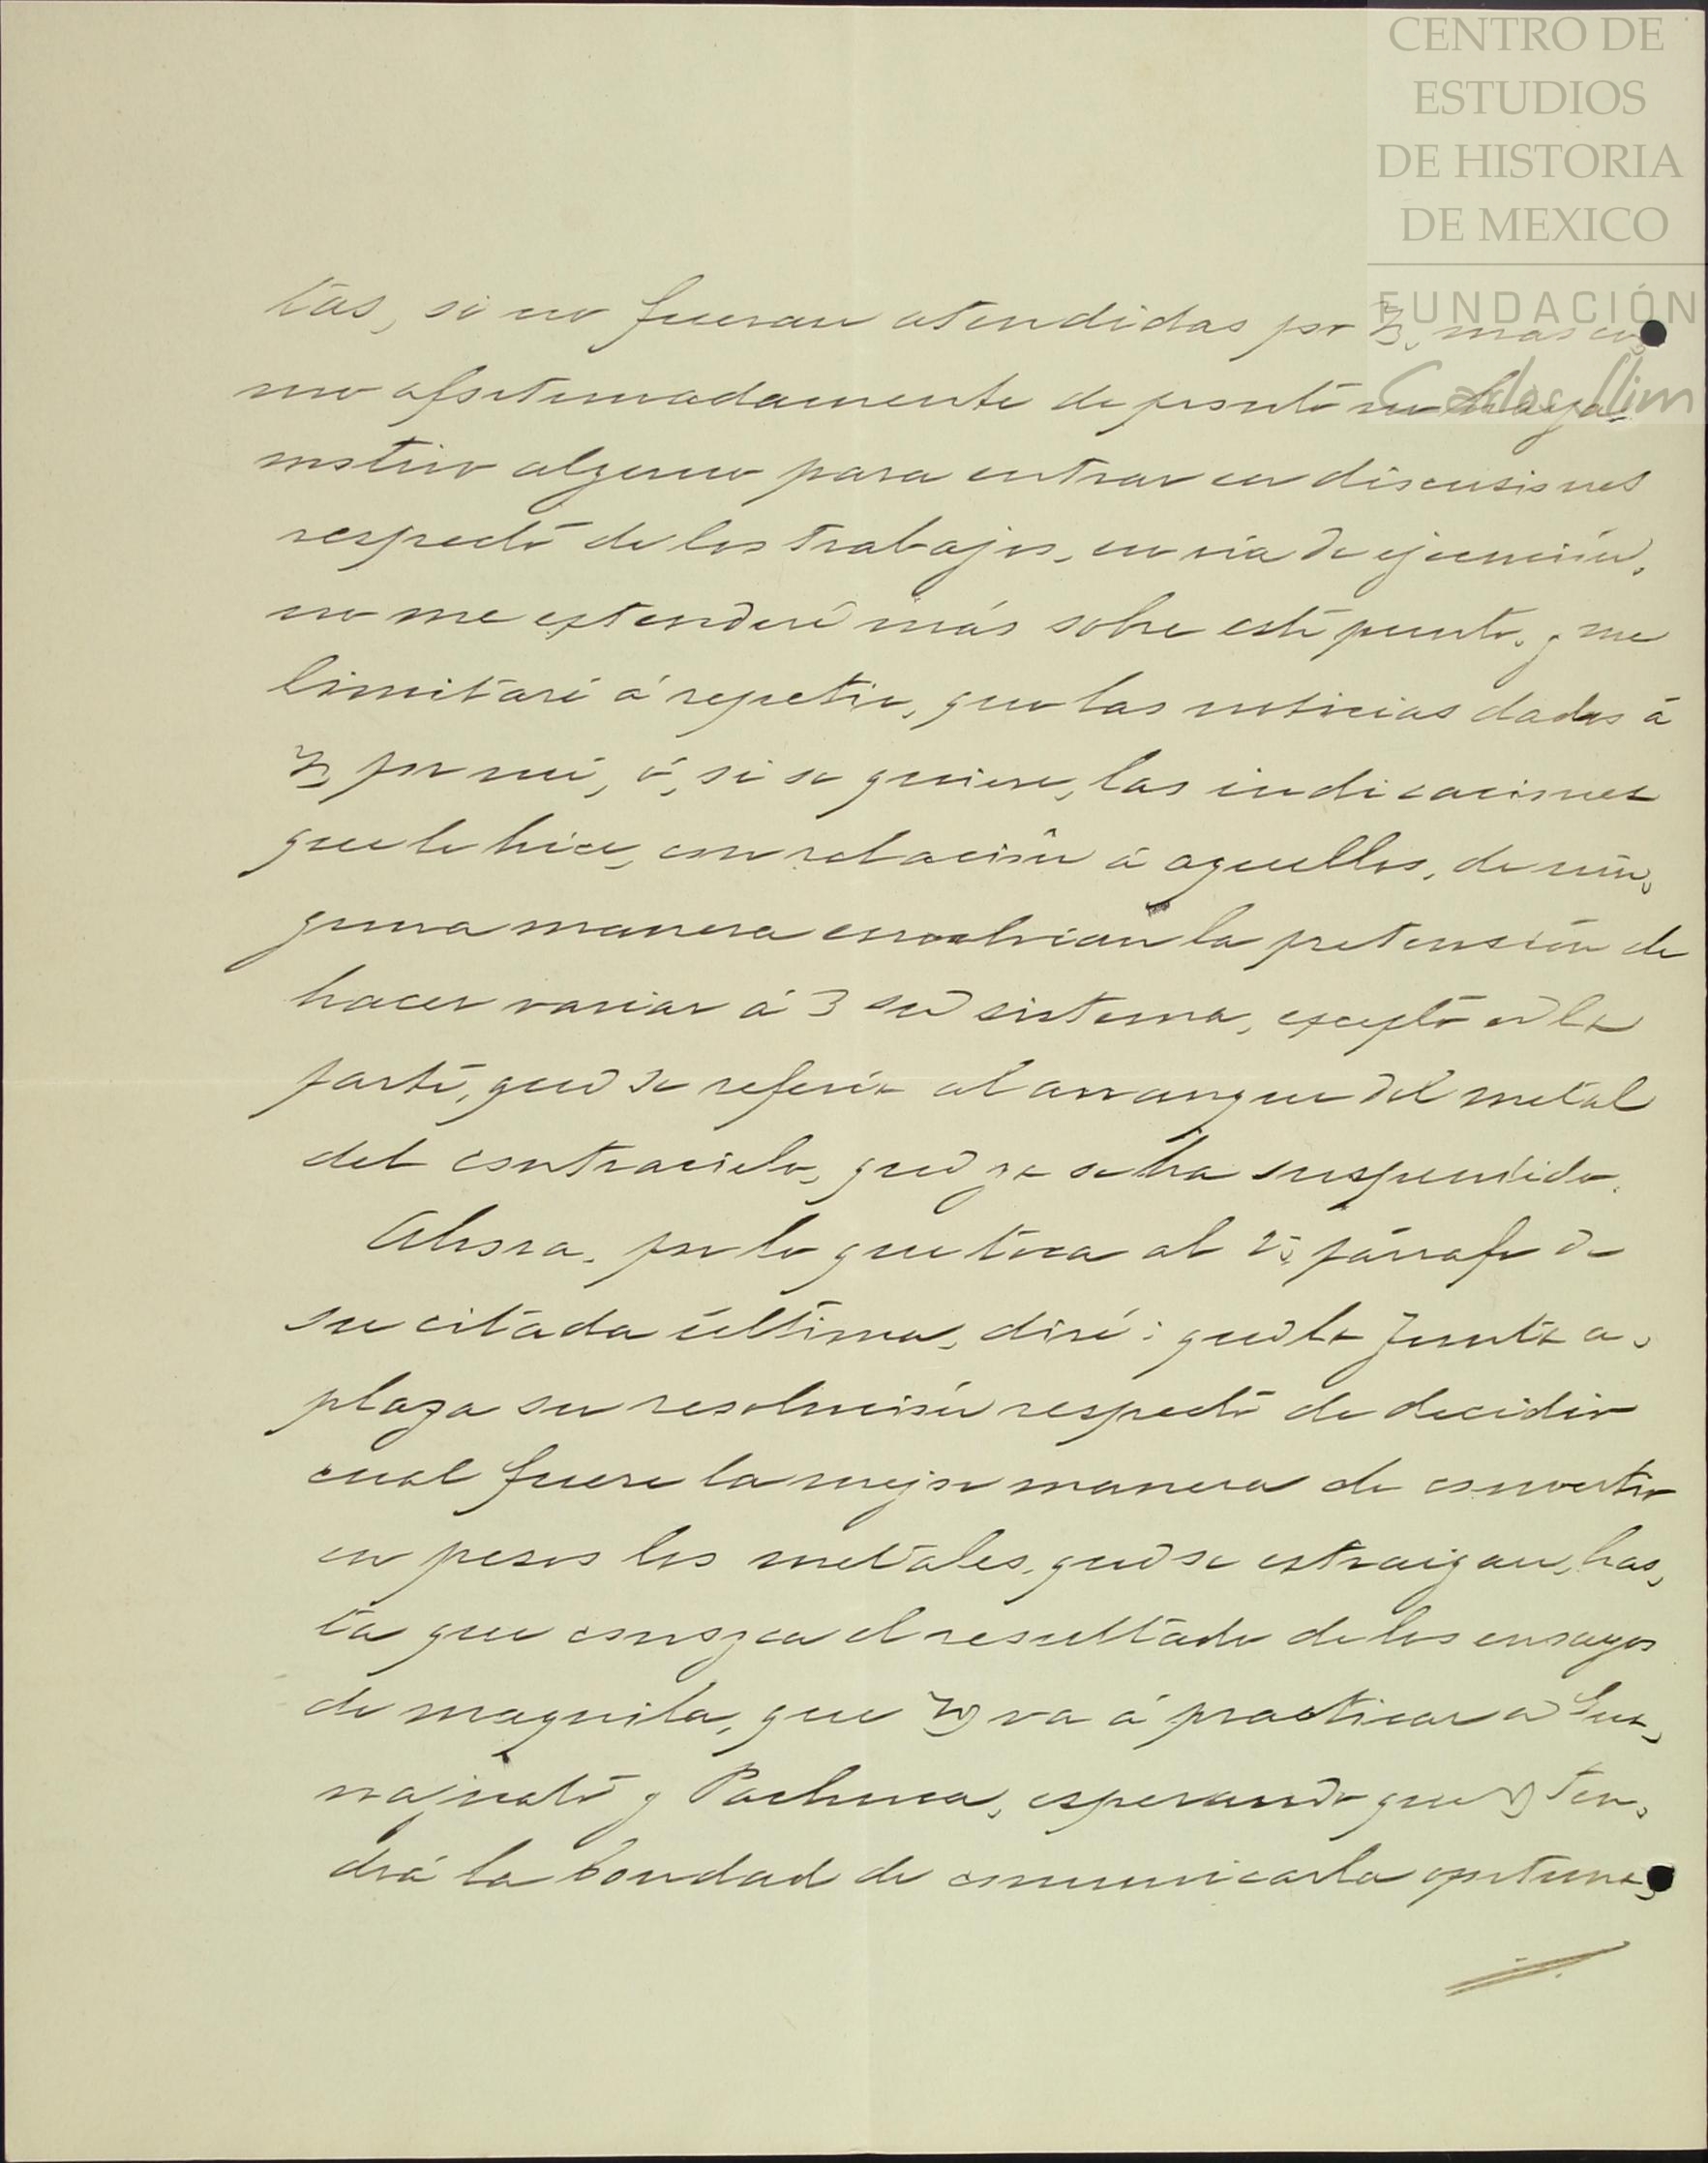 CENTRO DE
ESTUDIOS
DE HISTORIA
DE MEXICO
FUNDACIÓN
Carlos Slim
tas, si no fueran atendidas por V., mas co
mo afortunadamente de pronto no haya
motivo alguno para entrar en discusiones
respecto de los trabajos, en via de ejecución,
no me extenderé más sobre este punto, y me
limitaré á repetir, que las noticias dadas á
V. por mi, ó, si se quiere, las indicaciones
que le hice, con relación á aquellos, de nin,
guna manera envolvian la pretensión de
hacer variar á V su sistema, excepto en la
parte, que se referia al arranque del metal
del contracielo, que ya se ha suspendido.
Ahora, por lo que toca al 2º, párrafo de
su citada última, diré: que la Junta a,
plaza su resolución respecto de decidir
cual fuere la mejor manera de convertir
en pesos los metales, que se extraigan, has,
ta que conozca el resultado de los ensayes
de maquila, que V. va á practicar en Gua,
najuato y Pachuca, esperando que V. ten,
drá la bondad de comunicarla oportuna,